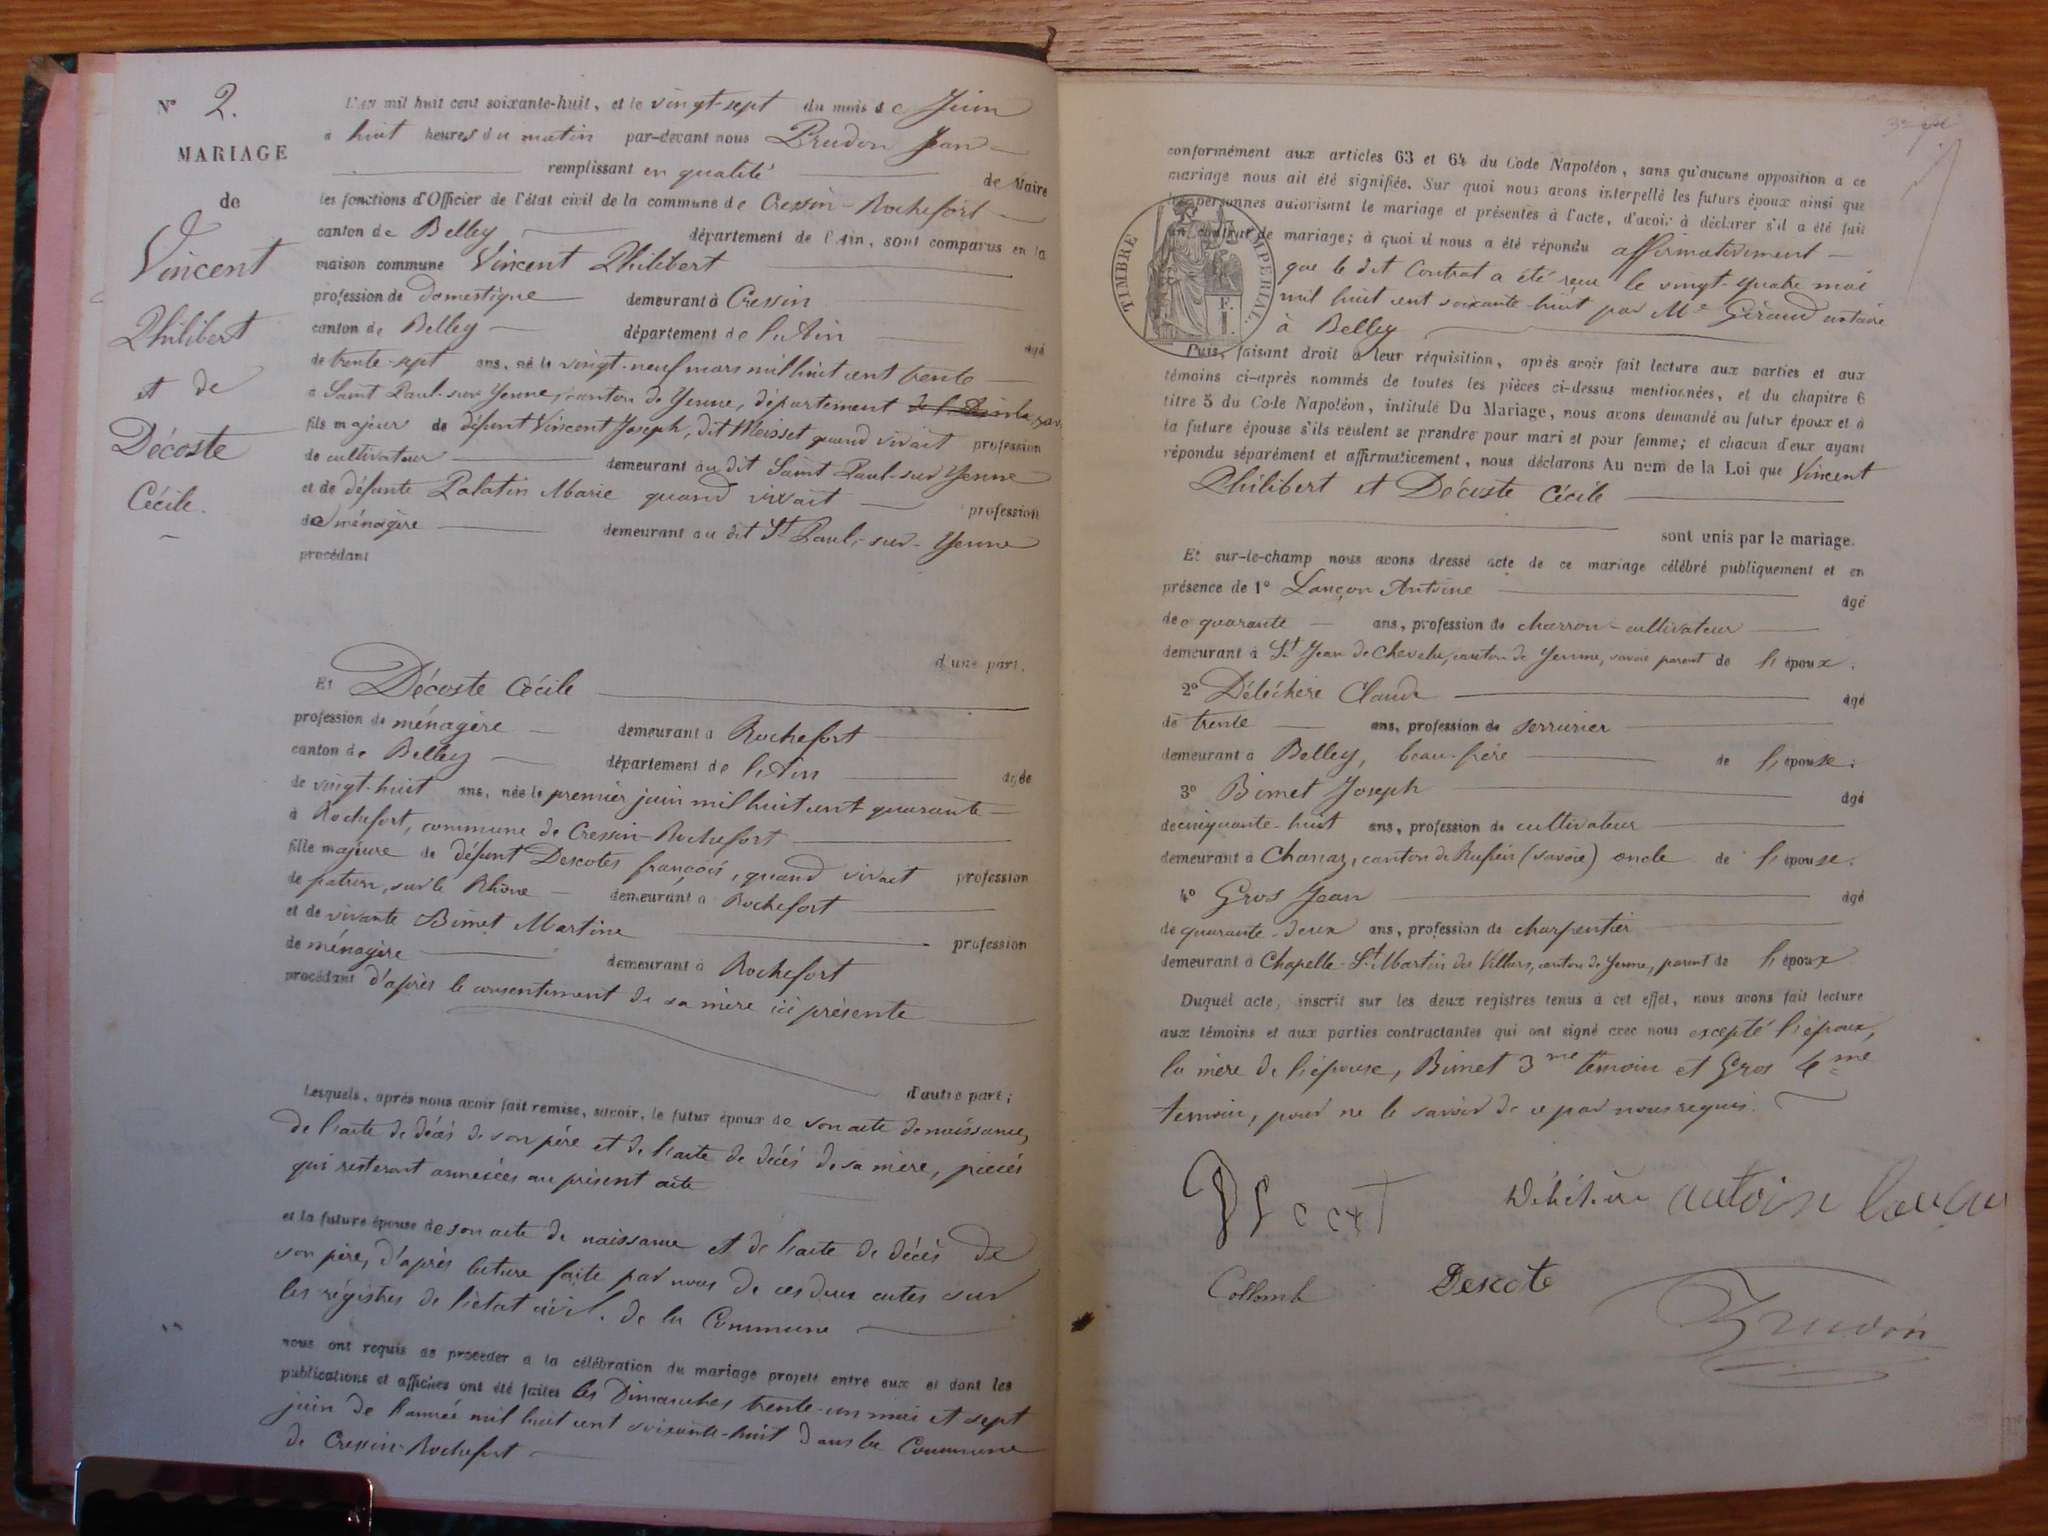 N° 2.
MARIAGE
de
Vincent
Philibert
et de
Décoste
Cécile.
L'an mil huit cent soixante-huit, et le vingt-sept du mois de Juin
a huit heures du matin par-devant nous Prudon Jean
remplissant en qualité de Maire
les fonctions d'Officier de l'état civil de la commune de Cressin-Rochefort
canton de Belley département de l'Ain, sont comparus en la
maison commune Vincent Philibert
profession de domestique demeurant à Cressin
canton de Belley département de l'Ain âgé
de trente-sept ans, né le vingt-neuf mars mil huit cent trente
a Saint Paul-sur-Yenne, canton de Yenne, département
fils majeur de défunt Vincent Joseph, dit Meisset quand vivait profession
de cultivateur demeurant au dit Saint Paul-sur Yenne
et de défunte Palatin Marie quand vivait profession
de ménagère demeurant au dit St Paul-sur-Yenne
procédant
d'une part.
Et Décoste Cécile
profession de ménagère demeurant à Rochefort
canton de Belley département de l'Ain agée
de vingt-huit ans, née le premier juin mil huit cent quarante
à Rochefort, commune de Cressin-Rochefort
fille majeure de défunt Descotes françois, quand vivait profession
de patron, sur le Rhône demeurant à Rochefort
et de vivante Bimet Martine profession
de ménagère demeurant à Rochefort
procédant d'après le consentement de sa mère ici présente
d'autre part;
Lesquels, après nous avoir fait remise, savoir, le futur époux de son acte de naissance,
de l'acte de décès de son père et de l'acte de décès de sa mère, pièces
qui resteront annexées au présent acte
et la future épouse de son acte de naissance et de l'acte de décès de
son père, d'après lecture faite par nous de ces deux actes sur
les régistres de l'état civil. de la Commune
nous ont requis de procéder a la célébration du mariage projeté entre eux et dont les
publications et affiches ont été faites les Dimanches trente-un mai et sept
juin de l'année mil huit cent soixante-huit dans la Commune
de Cressin-Rochefort
conformément aux articles 63 et 64 du Code Napoléon, sans qu'aucune opposition a ce
mariage nous ait été signifiée. Sur quoi nous avons interpellé les futurs époux ainsi que
les personnes autorisant le mariage et présentes à l'acte, d'avoir à déclarer s'il a été fait
un contrat de mariage; à quoi il nous a été répondu affirmativement
que le dit Contrat a été reçu le vingt-quatre mai
mil huit cent soixante-huit par Me Géraud notaire
à Belley
TIMBRE IMPÉRIAL.
Puis, faisant droit à leur réquisition, après avoir fait lecture aux parties et aux
témoins ci-après nommés de toutes les pièces ci-dessus mentionnées, et du chapitre 6
titre 5 du Code Napoléon, intitulé Du Mariage, nous avons demandé au futur époux et à
la future épouse s'ils veulent se prendre pour mari et pour femme; et chacun d'eux ayant
répondu séparément et affirmativement, nous déclarons Au nom de la Loi que Vincent
Philibert et Décoste Cécile
sont unis par le mariage.
Et sur-le-champ nous avons dressé acte de ce mariage célébré publiquement et en
présence de 1° Lançon Antoine âgé
de quarante ans, profession de charron-cultivateur
demeurant à St Jean de Chevelu, canton de Yenne, savoie parent de l'époux.
2° Déléchère Claude âgé
de trente ans, profession de serrurier
demeurant à Belley, beau-frère de l'épouse.
3° Bimet Joseph âgé
de cinquante-huit ans, profession de cultivateur
demeurant à Chanaz, canton de Ruffieu (savoie) oncle de l'épouse.
4° Gros Jean âgé
de quarante-deux ans, profession de charpentier
demeurant à Chapelle-St Martin du Villars, canton de Yenne, parent de l'époux
Duquel acte, inscrit sur les deux registres tenus à cet effet, nous avons fait lecture
aux témoins et aux parties contractantes qui ont signé avec nous excepté l'époux,
la mère de l'épouse, Bimet 3me temoin et Gros 4me
temoin, pour ne le savoir de ce par nous requis.
antoin
Collomb Descote Prudon